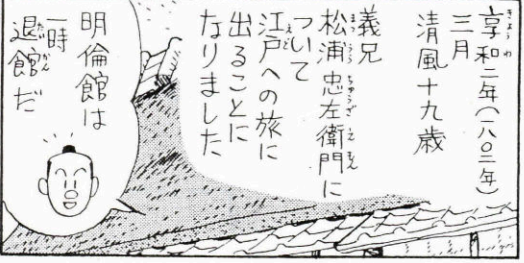 享和二年(一八〇二年)
三月
清風十九歳
義兄
松浦忠左衛門に
ついて
江戸への旅に
出ることに
なりました
明倫館は
一時
退館だ